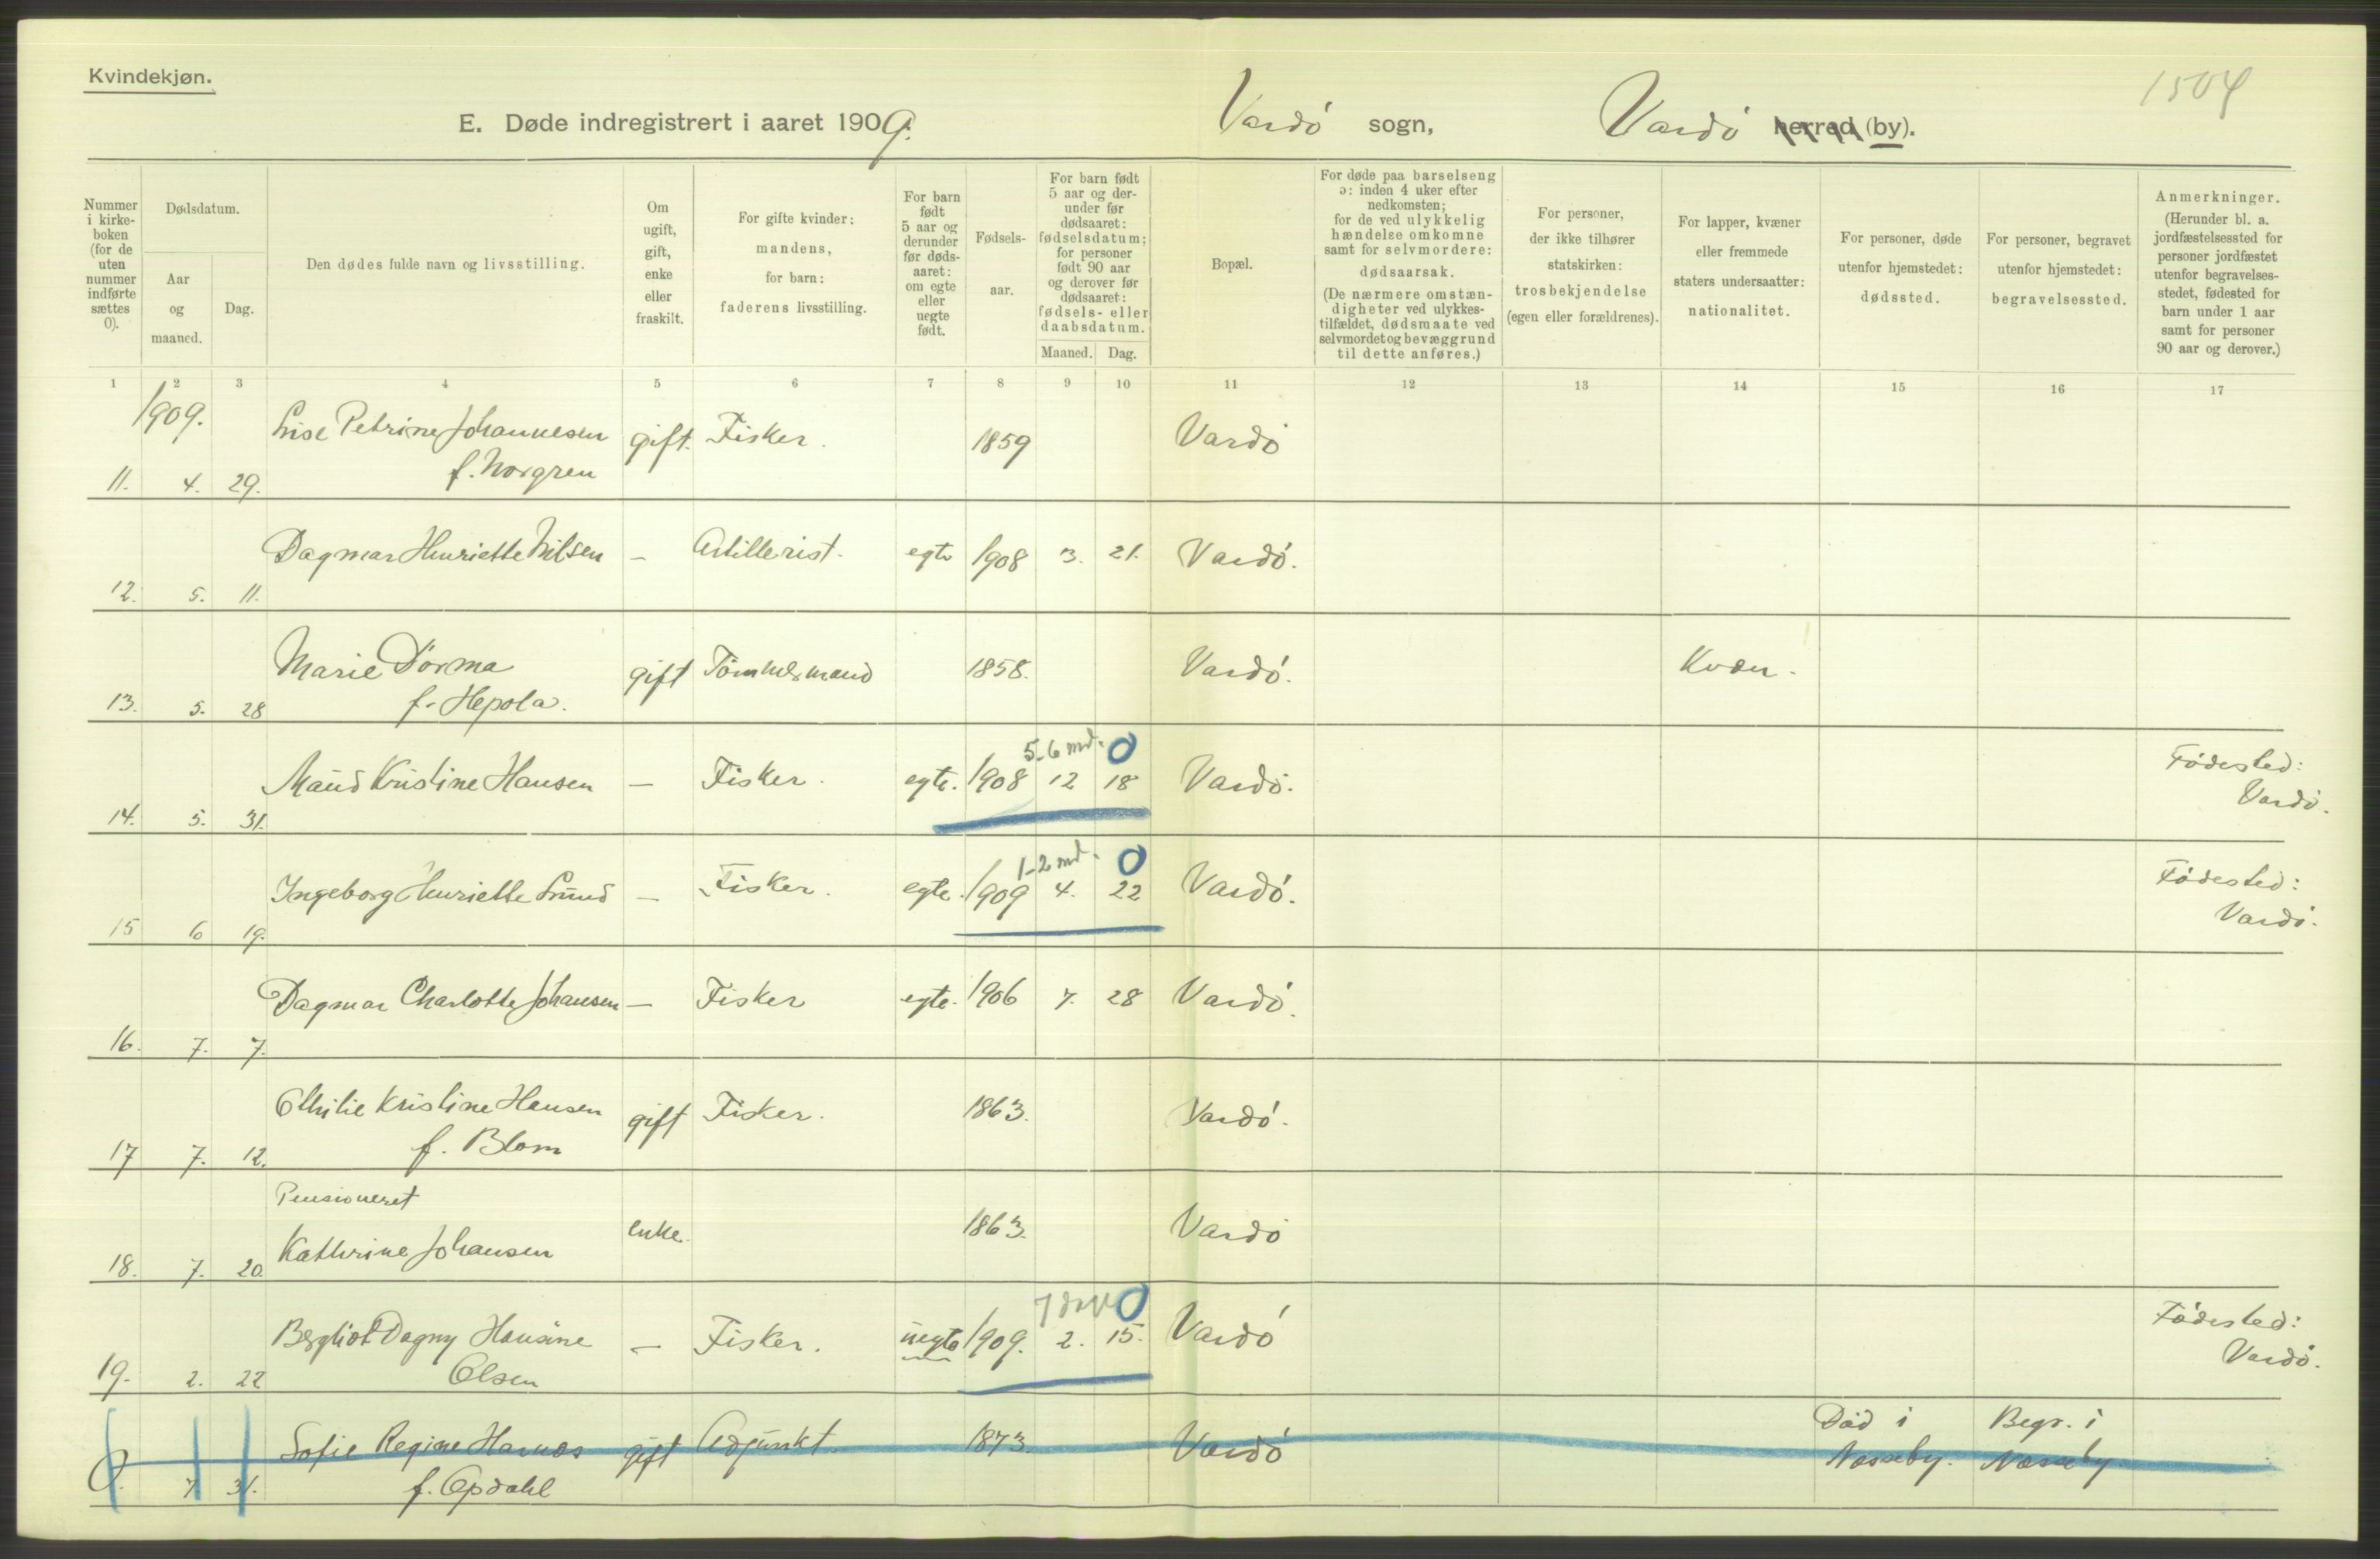 Kvindekjøn.
1504
E. Døde indregistrert i aaret 1909. Vardö sogn, Vardö herred (by).
Nummer i kirke- boken (for de uten nummer indførte sættes 0).
Dødsdatum.
Aar og maaned.
Dag.
Den dødes fulde navn og livsstilling.
Om ugift, gift, enke eller fraskilt.
For gifte kvinder: mandens, for barn: faderens livsstilling.
For barn født 5 aar og derunder før døds- aaret: om egte eller uegte født.
Fødsels- aar.
For barn født 5 aar og der- under før dødsaaret: fødselsdatum; for personer født 90 aar og derover før dødsaaret: fødsels- eller daabsdatum.
Maaned. Dag.
Bopæl.
For døde paa barselseng ɔ: inden 4 uker efter nedkomsten; for de ved ulykkelig hændelse omkomne samt for selvmordere: dødsaarsak. (De nærmere omstæn- digheter ved ulykkes- tilfældet, dødsmaate ved selvmordet og bevæggrund til dette anføres.)
For personer, der ikke tilhører statskirken: trosbekjendelse (egen eller forældrenes).
For lapper, kvæner eller fremmede staters undersaatter: nationalitet.
For personer, døde utenfor hjemstedet: dødssted.
For personer, begravet utenfor hjemstedet: begravelsessted.
Anmerkninger. (Herunder bl. a. jordfæstelsessted for personer jordfæstet utenfor begravelses- stedet, fødested for barn under 1 aar samt for personer 90 aar og derover.)
1 2 3 4 5 6 7 8 9 10 11 12 13 14 15 16 17
1909.
Lise Petrine Johannesen gift. Fisker. 1859 Vardö
11. 4. 29. f. Norgren
Dagmar Henriette Nilsen – Artillerist. egte 1908 3. 21. Vardö.
12. 5. 11.
Marie Törmä gift Tömmermand 1858. Vardö. Kvæn.
13. 5. 28 f. Hepola.
5-6 md. 0
Maud Kristine Hansen – Fisker. egte. 1908 12 18 Vardö. Födested:
Vardö.
14. 5. 31.
1-2 md. 0
Ingeborg Henriette Lund – Fisker. egte. 1909 4. 22 Vardö. Födested:
Vardö.
15 6 19.
Dagmar Charlotte Johansen – Fisker egte. 1906 7. 28 Vardö.
16. 7. 7.
Othilie Kristine Hansen gift Fisker. 1863. Vardö.
17 7. 12. f. Blom
Pensioneret
enke. 1863. Vardö
18. 7. 20. Kathrine Johansen
7 dage 0
Bergliot Dagny Hansine – Fisker. uegte 1909. 2. 15. Vardö Födested:
Vardö.
19. 2. 22 Olsen
Sofie Regine Havnæs gift Adjunkt. 1873. Vardö Död i Næsseby. Begr. i Næsseby
0. 7 31. f. Opdahl